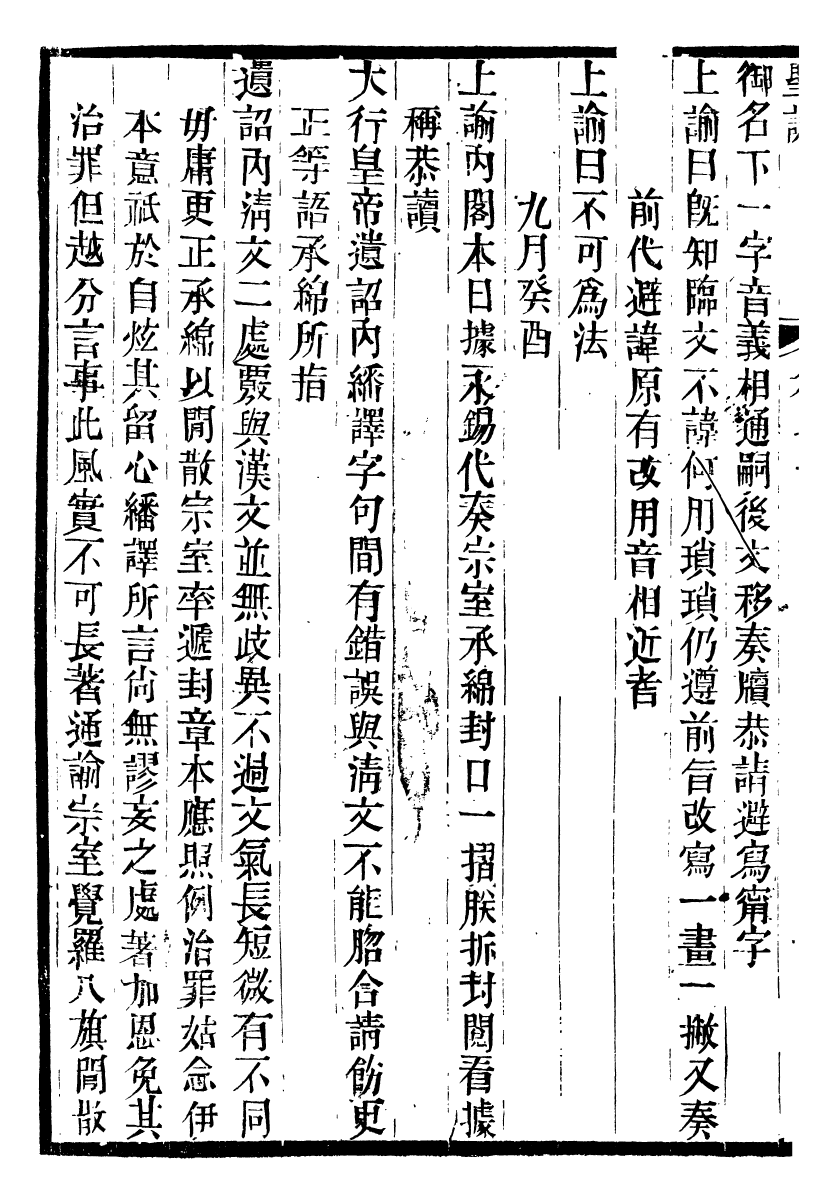 御名下一字音義相通嗣後文移奏牘恭請避寫甯字
上諭曰旣知臨文不諱何用瑣瑣仍遵前旨改寫一畫一撇又奏
前代避諱原有改用音相近者
上諭曰不可爲法
九月癸酉
上諭內閣本日據永錫代奏宗室承綿封口一摺朕拆封閱看據
稱恭讀
大行皇帝遺詔內繙譯字句間有錯誤與淸文不能脗合請飭更
正等語承綿所指
遺詔內淸文二處覈與漢文並無歧異不過文氣長短微有不同
毋庸更正承綿以閒散宗室率遞封章本應照例治罪姑念伊
本意祇於自炫其留心繙譯所言尙無謬妄之處著加恩免其
治罪但越分言事此風實不可長著通諭宗室覺羅八旗閒散